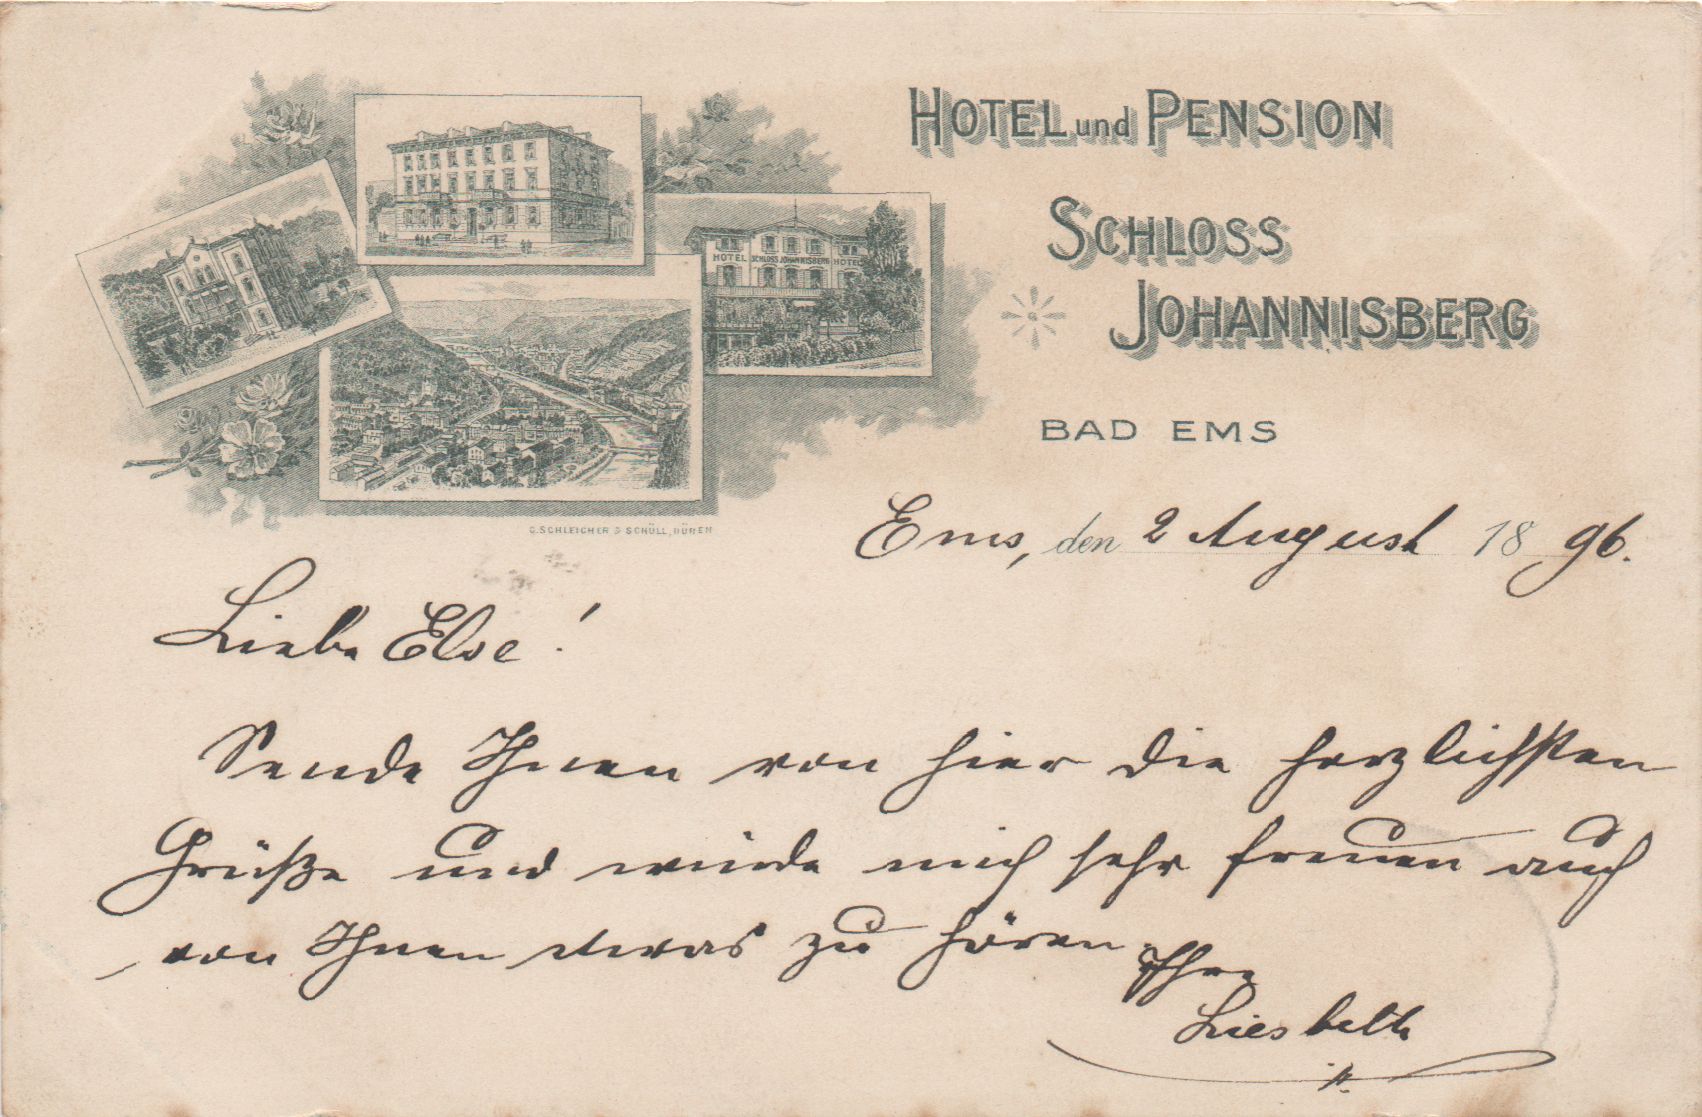 HOTEL und PENSION
SCHLOSS
JOHANNISBERG
BAD EMS
HOTEL SCHLOSS JOHANNISBERG HOTEL
C. SCHLEICHER & SCHÜLL, DÜREN
Ems, den 2 August 1896.
Liebe Else!
Sende Ihnen von hier die herzlichsten
Grüße und würde mich sehr freuen auch
von Ihnen etwas zu hören.
Ihre
Liesbeth